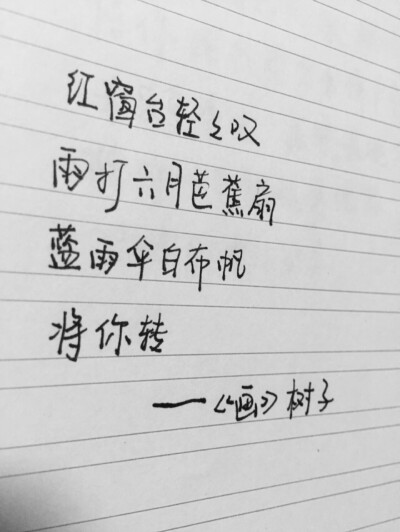 红窗台轻轻叹
雨打六月芭蕉扇
蓝雨伞白布帆
将你转
——《画》树子